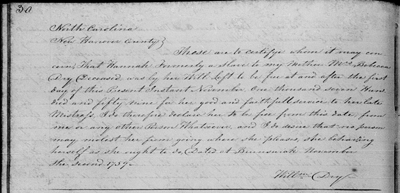 30
North Carolina
New Hanover County}
These are to Certifye whom it may con
cern, That Hannah Formerly a Slave to my Mother Mrs. Rebecca
Dry Deceased was by her Will left to be free at and after the first
Day of this Present Instant November One thousand seven Hun
dred and fifty nine for her good and faithfull service to her late
Mistress. I do therefore declare her to be free from this date from
me or any other Person Whatsoever, and I do desire that no person
may molest her from going where she please, she behaving
herself as she ought to do. Dated at Brunswick November
the second 1759.
Willm Dry